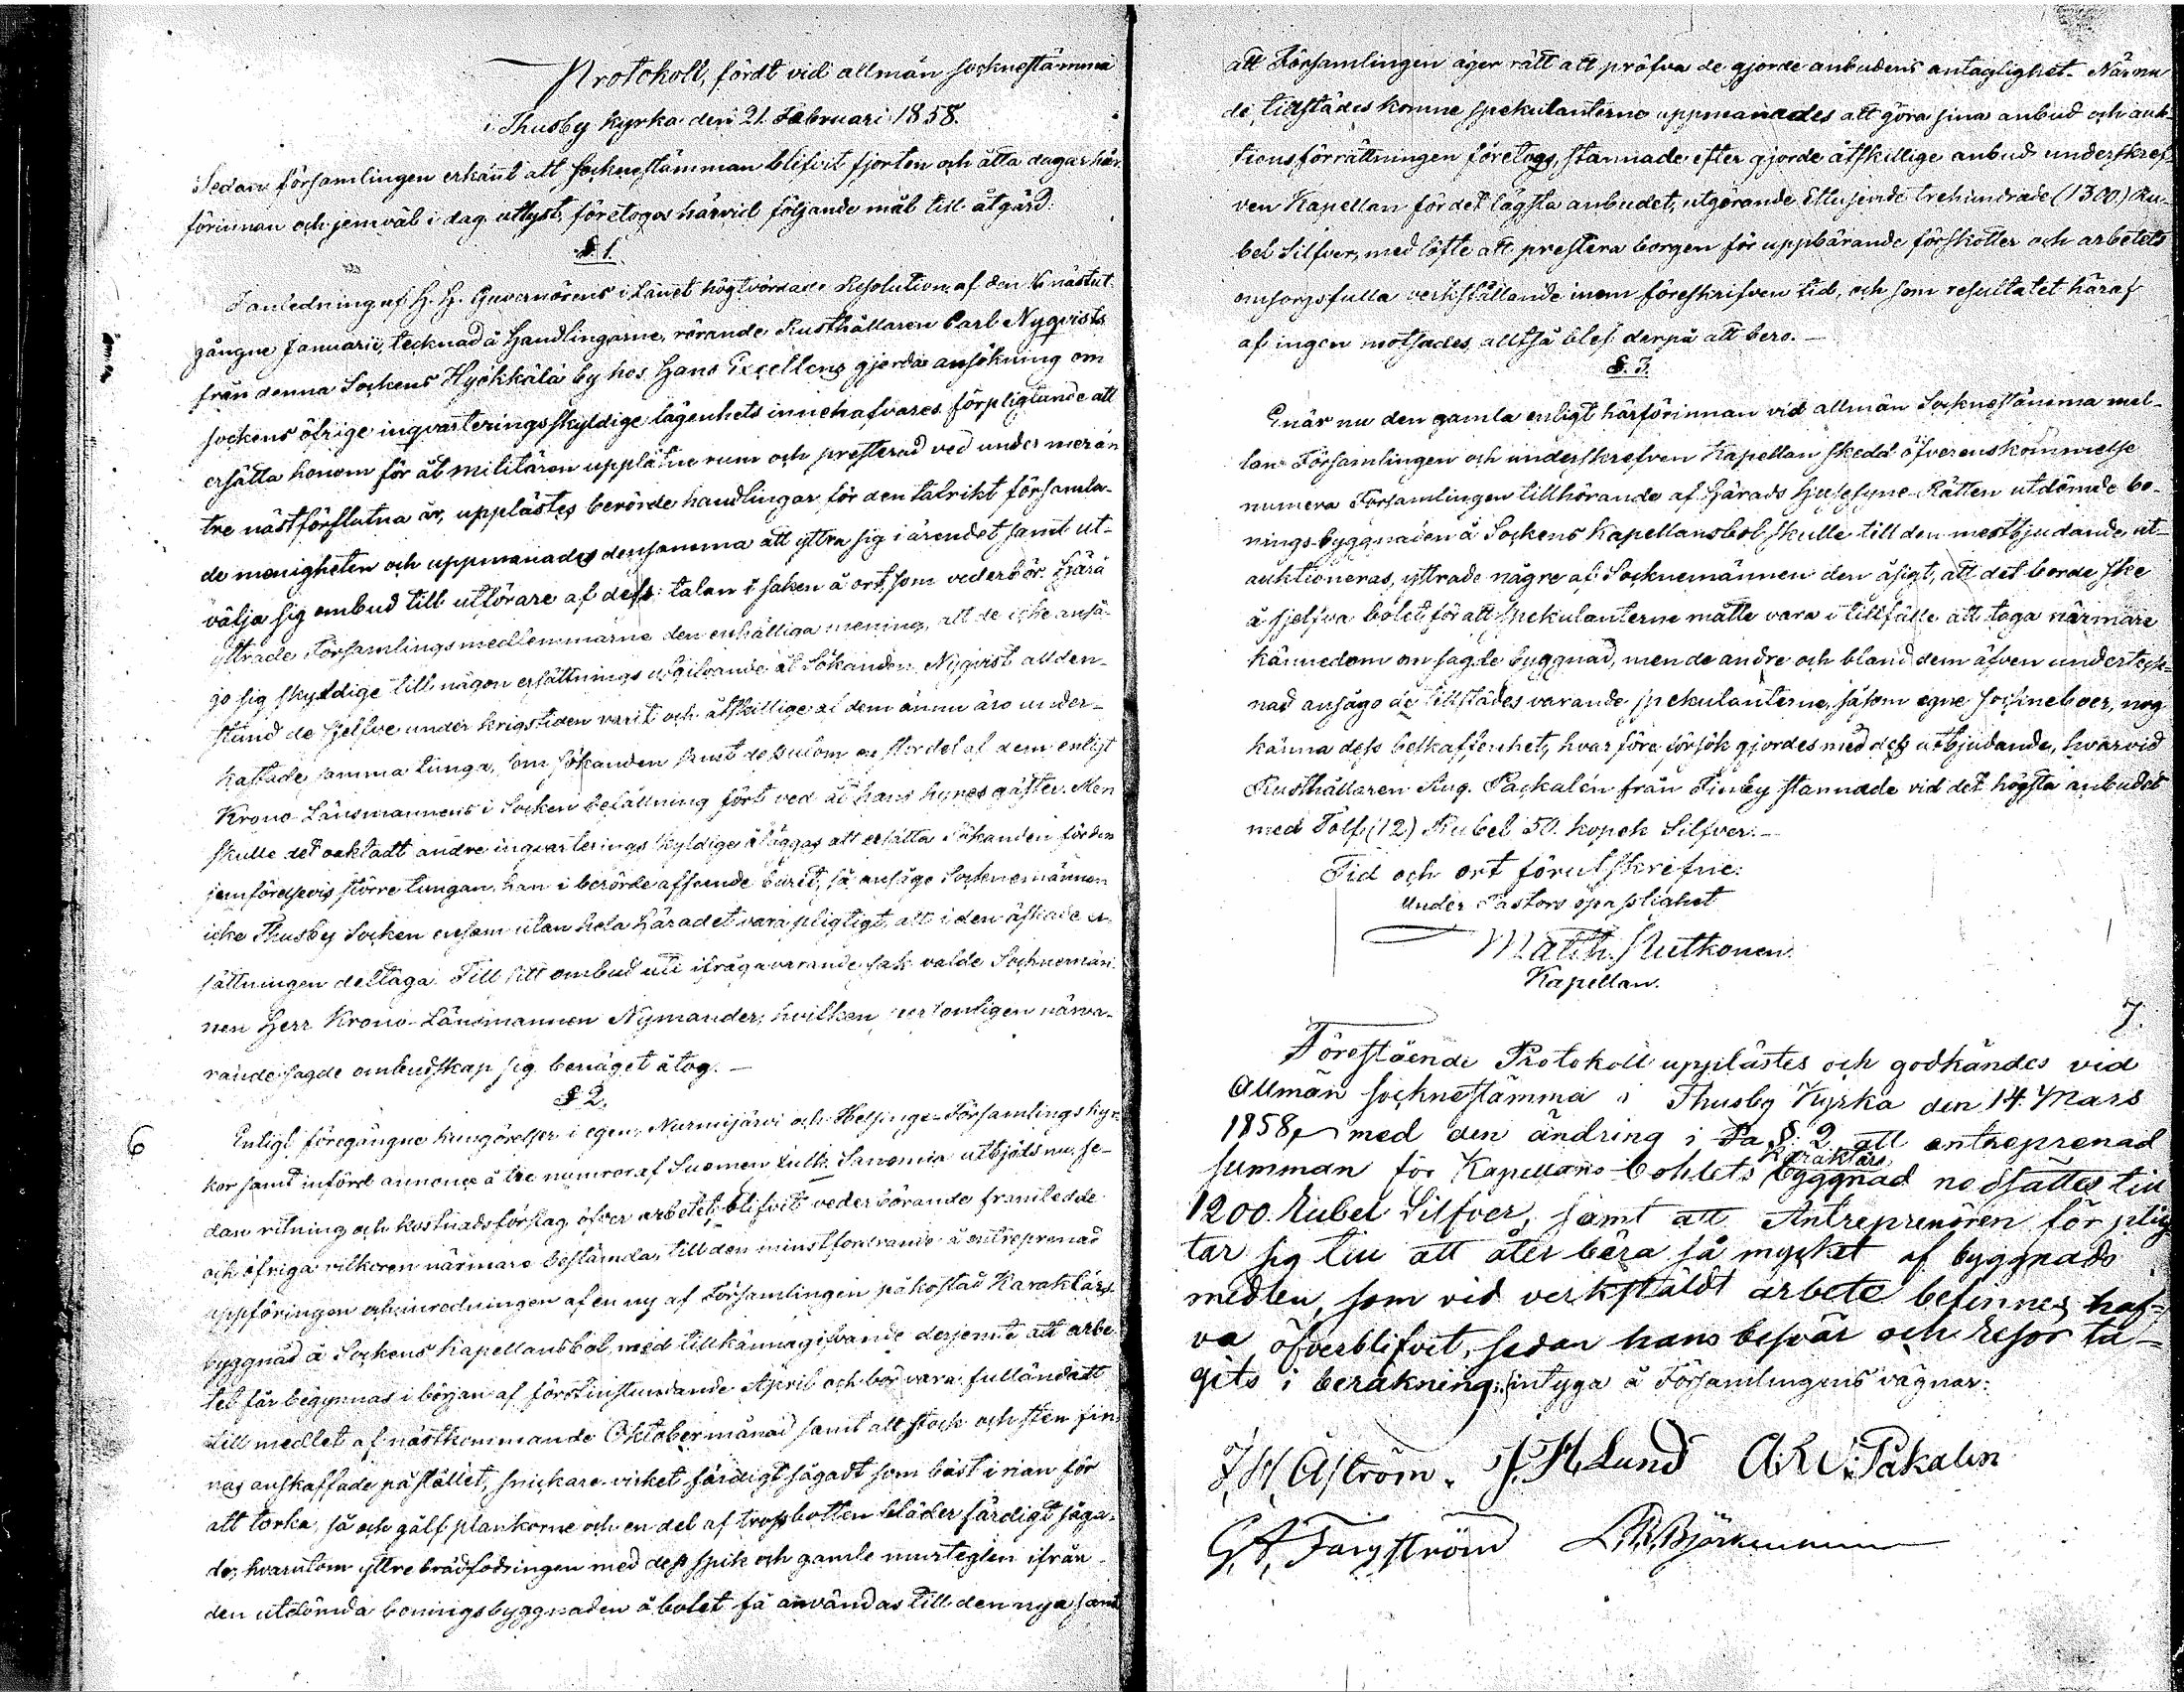 Protokoll, fördt vid allmän socknestämma
i Thusby kyrka den 21. Februari 1858.
Sedan församlingen erkänt att sockenstämman blifvit fjorton och åtta dagar här
förinnan och jemväl i dag utlyst, företogos härvid följande mål till åtgärd:
§. 1.
I anledning af H. H. Guvernörens i Länet högtvördade Resolution af den 16 nästut
gångne Januarii, tecknad å Handlingarne, rörande Rusthållaren Carl Nyqvists
från denna Sockens Hyökkälä by hos Hans Excellens gjorda ansökning om
sockens öfrige inqvarteringsskyldige lägenhets innehafvares förpligtande att
ersätta honom för åt militären upplåtne rum och presterad ved under mer än
tre nästförflutna år, upplästes berörde handlingar för den talrikt församla-
de menigheten och uppmanades densamma att yttra sig i ärendet samt ut-
välja sig ombud till utförare af dess talan i saken å ort, som vederbör. Härå
yttrade Församlingsmedlemmarne den enhälliga mening, att de icke anså-
go sig skyldige till någon ersättnings utgifvande åt Sökanden Nyqvist allden-
stund de sjelfve under krigstiden varit och åtskillige af dem ännu äro under-
kastade samma tunga, som sökanden samt dessutom en stor del af dem enligt
Krono Länsmannens i Socken befallning fört ved åt hans hyresgäster. Men
skulle det oaktadt andre inqvarterings skyldige åläggas att ersätta Sökanden för den
jemförelsevis större tungan, han i berörde afseende burit, så ansågo Socknemännen
icke Thusby Socken ensam utan hela Häradet vara pligtigt, att i den äskade er-
sättningen deltaga. Till sitt ombud uti ifrågavarande sak valde Socknemän-
nen Herr Krono Länsmannen Nymander, hvilken personligen närva-
rande sagde ombudskap sig benäget åtog. —
§ 2.
6
Enligt föregångne kungörelser i egen, Nurmijärvi och Helsinge Församlings kyr-
kor samt införd annonce å tre numror af Suomen Julk. Sanomia utbjöds nu, se-
dan ritning och kostnadsförslag öfver arbetet blifvit vederbörande framtedde
och öfriga vilkoren närmare bestämda, till den minstfordrande å entreprenad
uppföringen och inredningen af en ny af Församlingen påkostad Karaktärs-
byggnad å Sockens Kapellansbol, med tillkännagifvande derjemte att arbe-
tet får begynnas i början af förstinstundande April och bör vara fulländadt
till medlet af nästkommande Oktober månad samt att stock och sten fin-
nas anskaffade på stället, snickare virket färdigt sågadt som bäst i rian för
att torka, så och gålf plankorne och en del af trossbotten bläder färdigt såga-
de, hvarutom yttre brädfodringen med dess spik och gamle murteglen ifrån
den utdömda boningsbyggnaden å bolet få användas till den nya samt
att Församlingen äger rätt att pröfva de gjorde anbudens antaglighet. När nu
de tillstädes komne spekulanterne uppmanades att göra sina anbud och auk-
tionsförrättningen företogs, stannade efter gjorde åtskillige anbud underskref-
ven Kapellan för det lägsta anbudet, utgörande Ettusende trehundrade (1300) Ru-
bel Silfver, med löfte att prestera borgen för uppbärande förskotter och arbetets
omsorgsfulla verkställande inom föreskrifven tid, och som resultatet häraf
af ingen motsades, alltså blef derpå att bero. —
§. 3.
Enär nu den gamla enligt härförinnan vid allmän Socknestämma mel-
lan Församlingen och underskrefven Kapellan skedd öfverenskommelse
numera Församlingen tillhörande af Härads Husesyne-Rätten utdömde bo-
nings-byggnaden å Sockens Kapellansbol skulle till den mestbjudande ut-
auktioneras, yttrade någre af Socknemännen den åsigt, att det borde ske
å sjelfva bolet för att spekulanterne måtte vara i tillfälle att taga närmare
kännedom om sagde byggnad, men de andre och bland dem äfven undertek-
nad ansågo de tillstädes varande spekulanterne, såsom egne sockneboer, nog
känna dess beskaffenhet, hvarföre försök gjordes med dess utbjudande, hvarvid
Rusthållaren Aug. Packalén från Finby stannade vid det högsta anbudet
med Tolf (12) Rubel 50. kopek Silfver. —
Tid och ort förutskrifne:
Under Pastors opasslighet
Matth. Rutkonen.
Kapellan.
7.
Förestående Protokoll upplästes och godkändes vid
Allmän socknestämma i Thusby Kyrka den 14. Mars
1858, med den ändring i § 2 att entreprenad
summan för Kapellans bohlets Karaktärs byggnad nedsattes till
1200. Rubel Silfver, samt att Antreprenören förplig
tar sig till att återbära så mycket af byggnads
medlen, som vid verkstäldt arbete befinnes haf-
va öfverblifvit, sedan hans besvär och resor ta-
gits i beräkning; intyga å Församlingens vägnar:
J, W, Åström. J. H. Lund A. R. Pakalen
G, A, Färgström Björkman